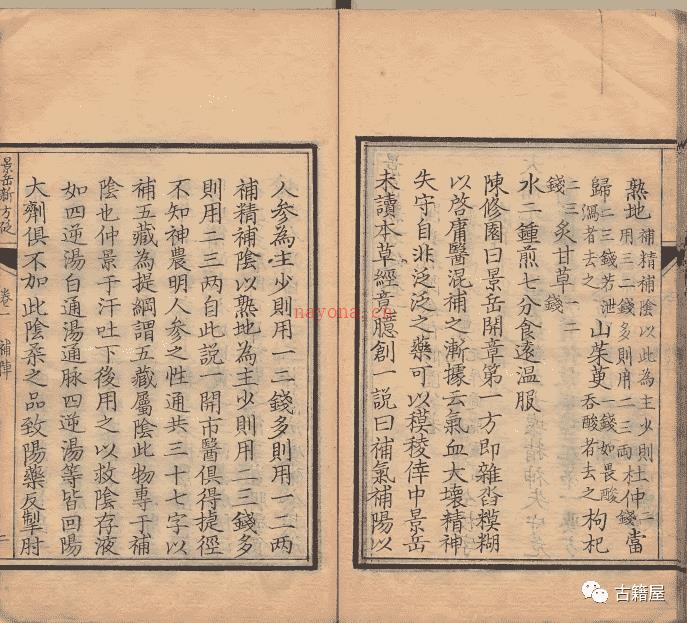 熟地補精補陰以此為主少則用三二錢多則用二三兩杜仲二錢當
歸二三錢若泄瀉者去之山茱萸一錢如畏酸吞酸者去之枸杞
二三錢炙甘草一二錢
水二鍾煎七分食遠温服
陳修園曰景岳開章第一方即雜沓糢糊
以啓庸醫混補之漸據云氣血大壞精神
失守自非泛泛之藥可以模稜倖中景岳
未讀本草經竟臆創一說曰補氣補陽以
人參為主少則用一二錢多則用一二兩
補精補陰以熟地為主少則用二三錢多
則用二三两自此説一開市醫俱得捷徑
不知神農明人參之性通共三十七字以
補五藏為提綱謂五藏屬陰此物專于補
陰也仲景于汗吐下後用之以救陰存液
如四逆湯白通湯通脉四逆湯等皆回陽
大劑俱不加此陰柔之品致陽藥反掣肘
景岳新方砭
卷一
補陣
nayona.cn
古籍屋